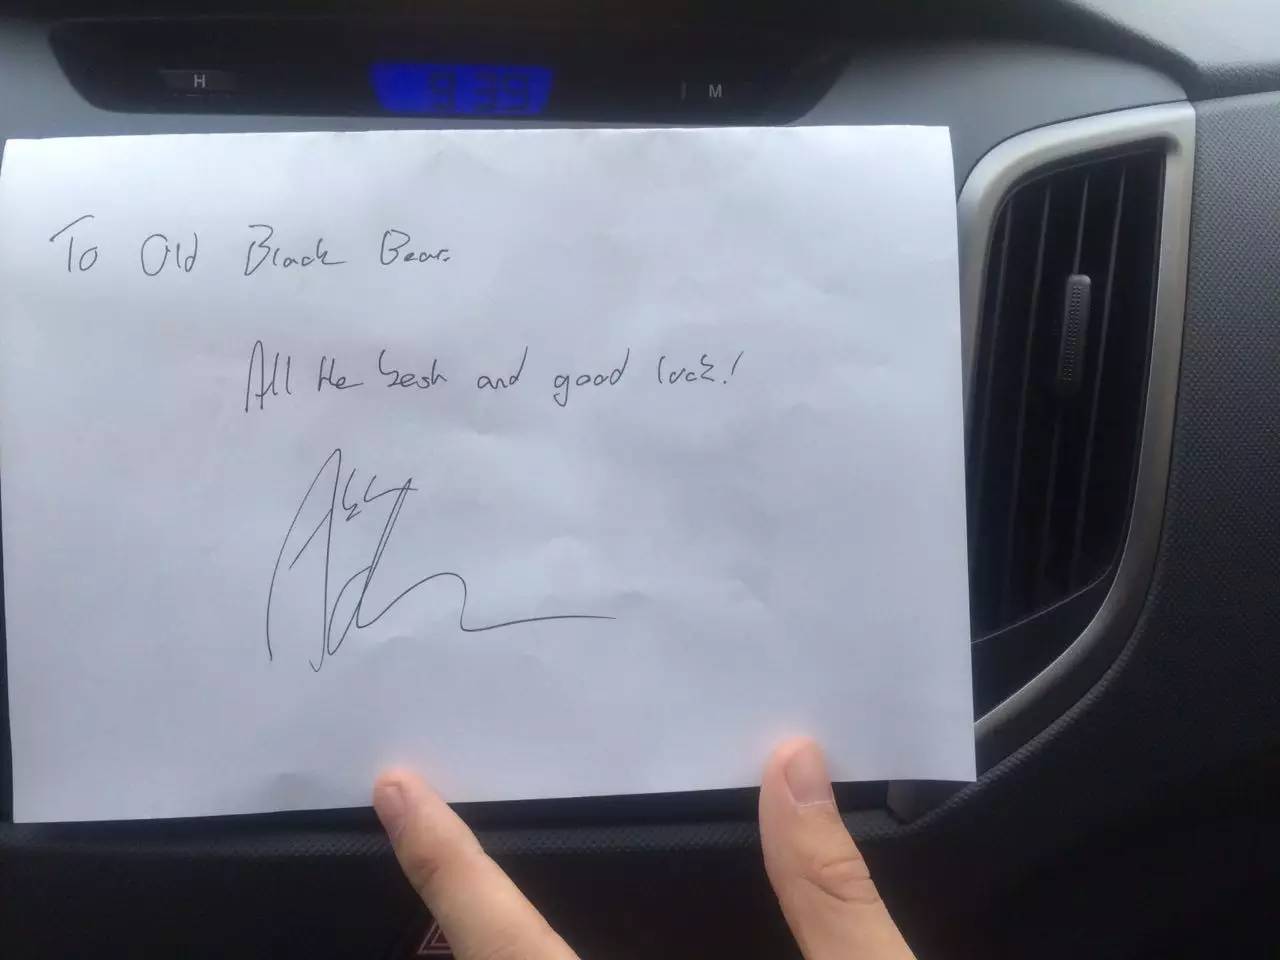 H 9:39 M
To Old Black Bear.
All the best and good luck!